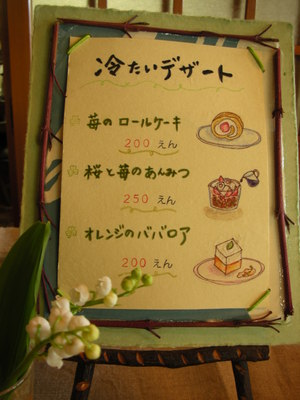 冷たいデザート
苺のロールケーキ
200 えん
桜と苺のあんみつ
250 えん
オレンジのババロア
200 えん